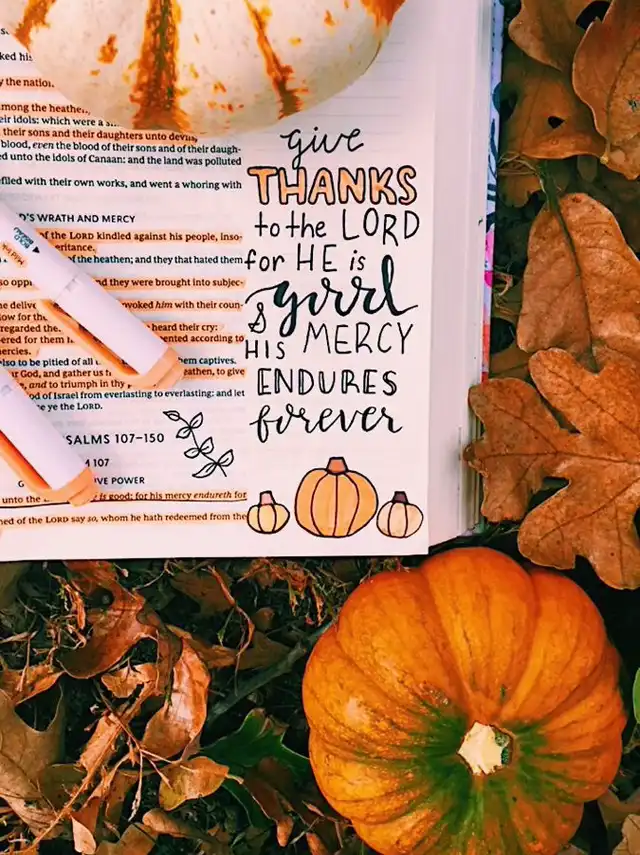 ked his
y the nation
mong the heathen,
eir idols: which were a
their sons and their daughters unto devils,
blood, even the blood of their sons and of their daugh-
ed unto the idols of Canaan: and the land was polluted
filed with their own works, and went a whoring with
D'S WRATH AND MERCY
of the LORD kindled against his people, inso-
eritance.
of the heathen; and they that hated them
so opp and they were brought into subjec-
e delive ovoked him with their coun-
low for the
regarded the heard their cry:
ered for them ented according to
ercies.
lso to be pitied of all t em captives.
r God, and gather us f eathen, to give
e, and to triumph in thy
od of Israel from everlasting to everlasting: and let
e ye the LORD.
SALMS 107–150
107
VE POWER
unto the is good: for his mercy endureth for
ed of the LORD say so, whom he hath redeemed from the
give
THANKS
to the LORD
for HE is
good
&
HIS MERCY
ENDURES
forever